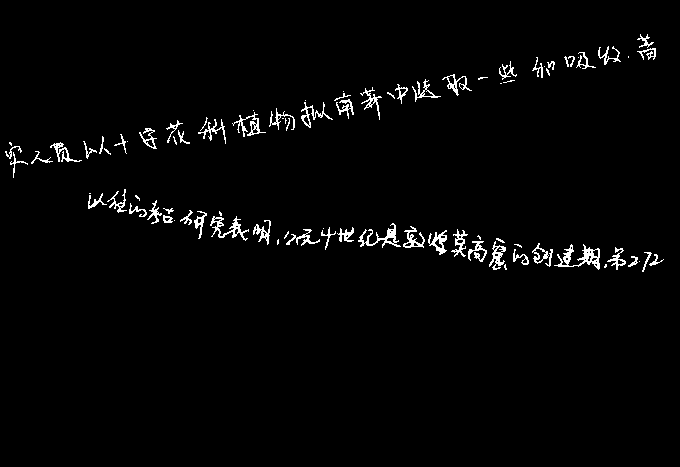 实人员从十字花科植物拟南芥中选取一些和吸收.蓄
以往的考古研究表明,公元4世纪是敦煌莫高窟的创建期.第272